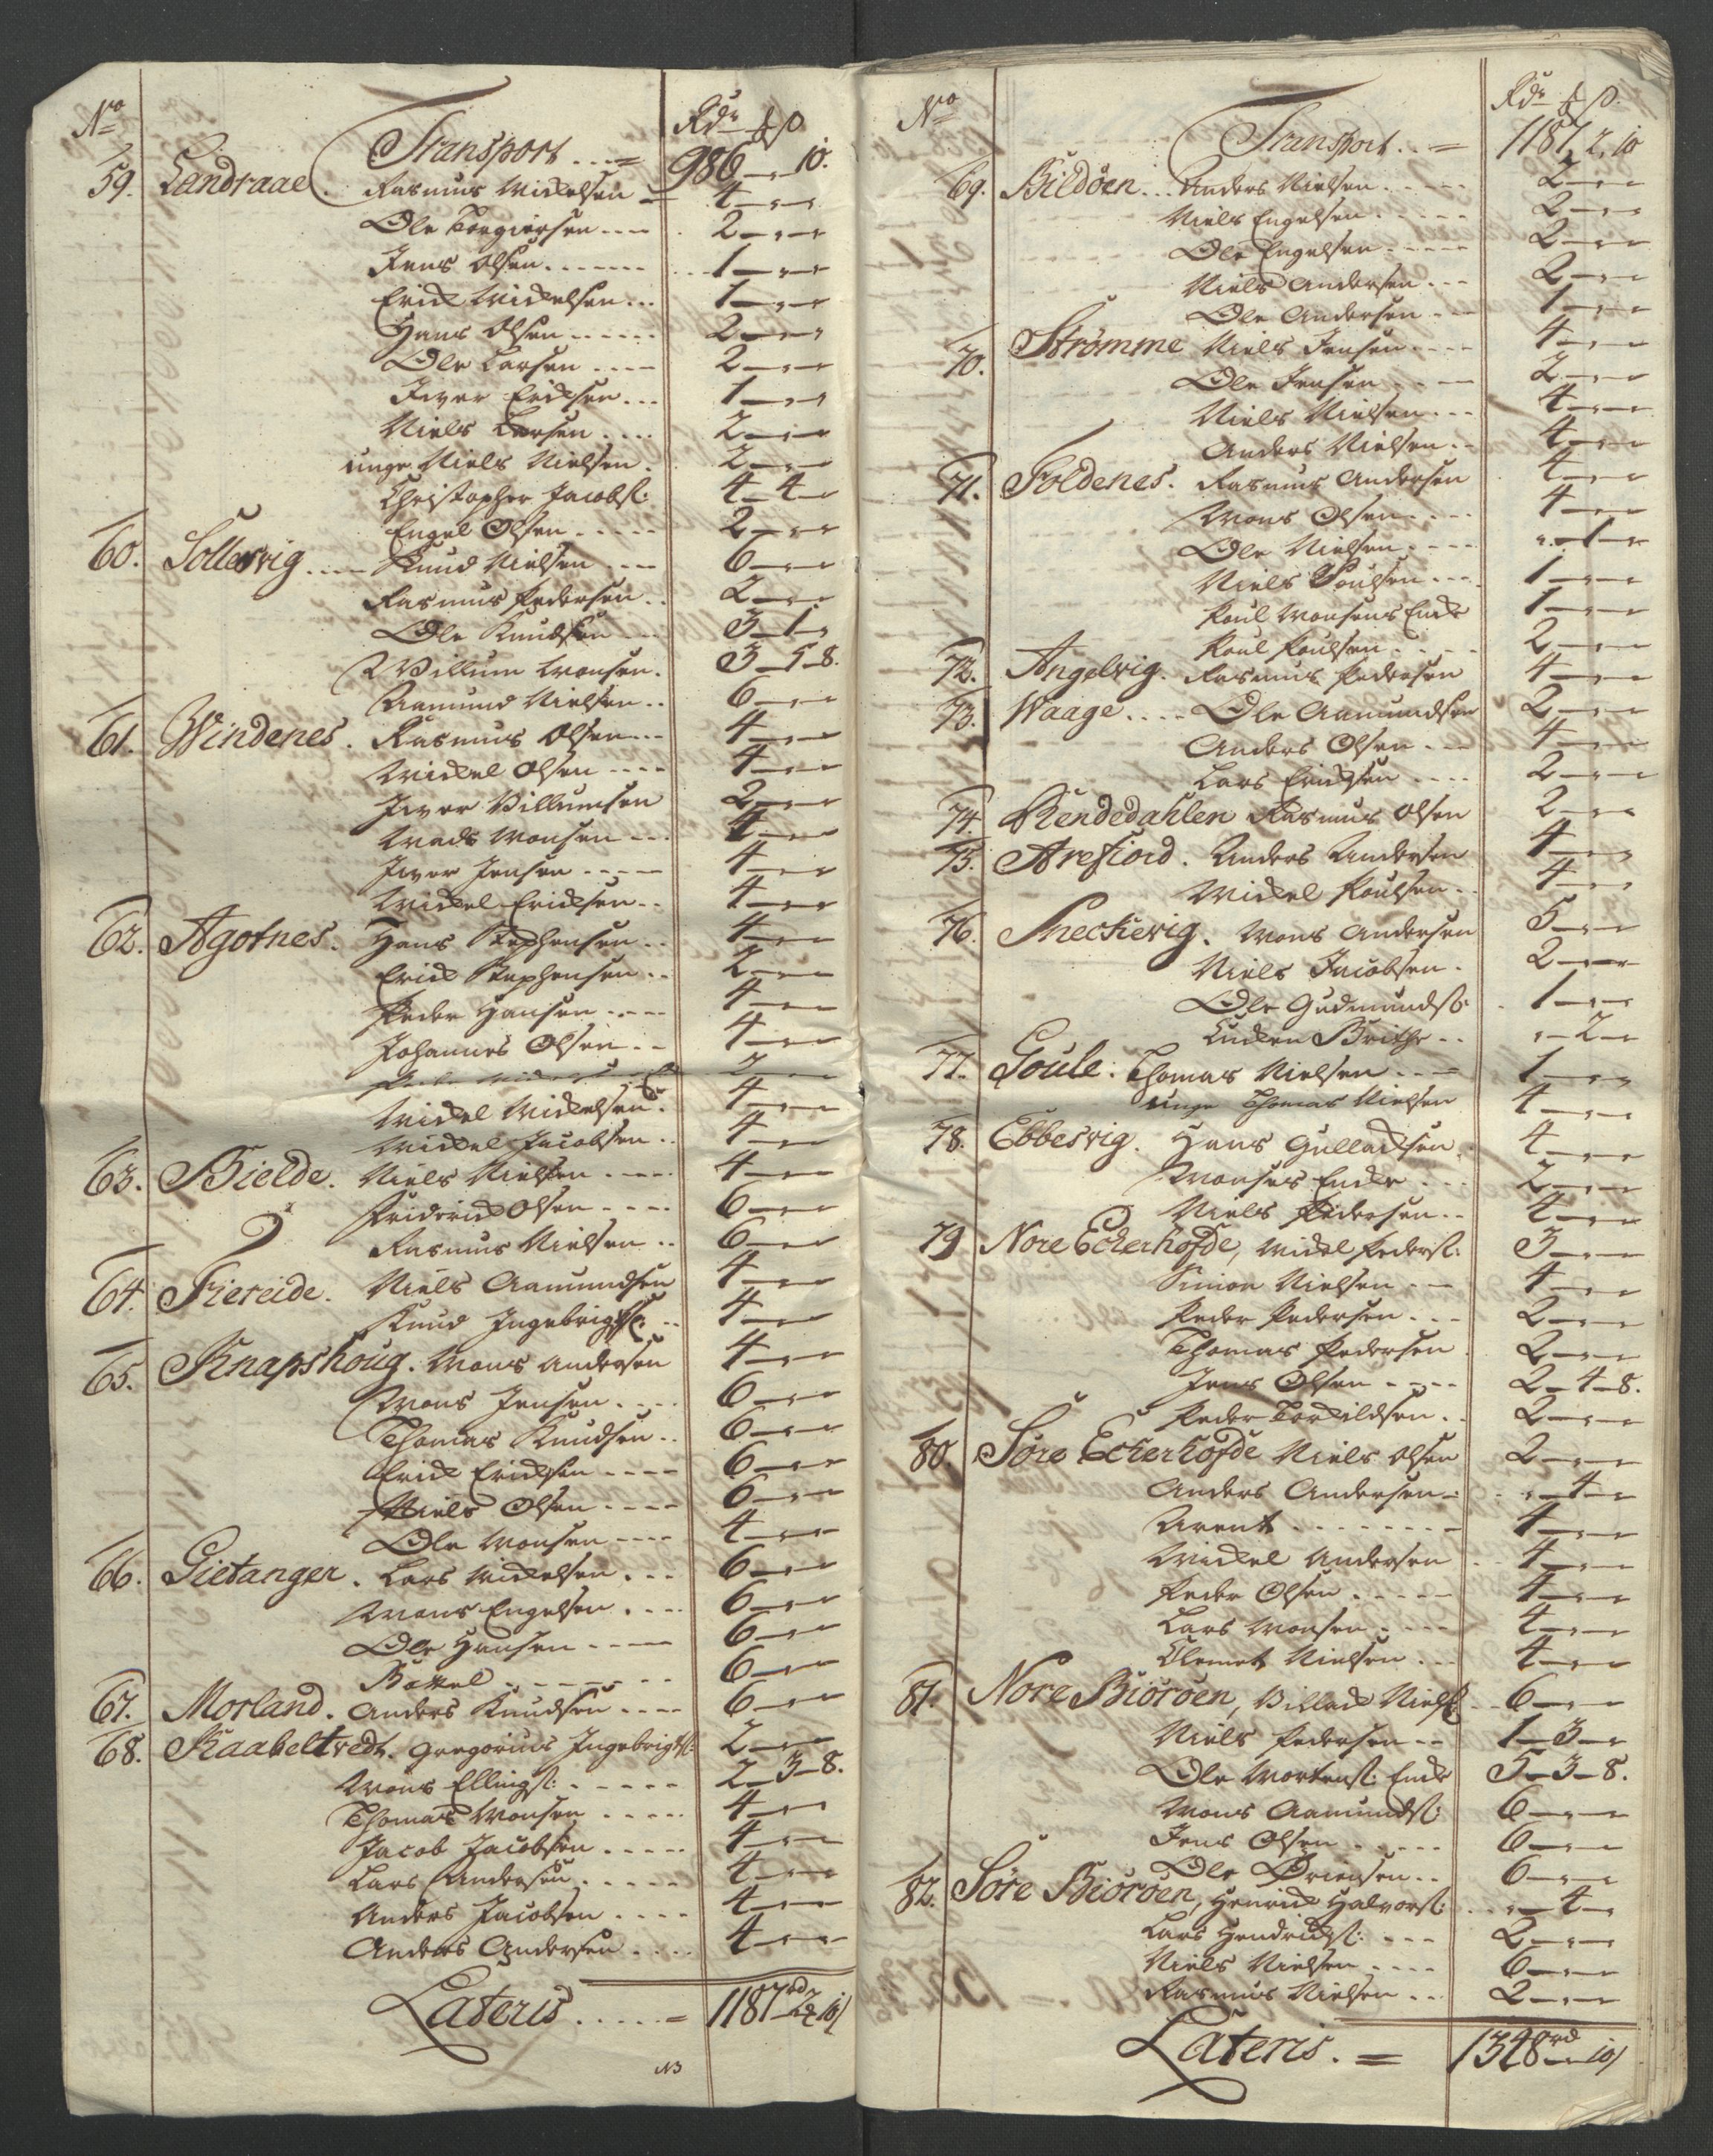 No Rdr ƒ β
Transport . . . = 986 - „ - 10.
59. Landraae. Rasmus Mickelsen - 4 - „ - „
Ole Torgiersen - - - 2 - „ - „
Jens Olsen - - - - 1 - „ - „
Erick Mickelsen . . . 1 - „ - „
Hans Olsen - - - - 2 - „ - „
Ole Larsen - - - - 2 - „ - „
Iver Ericksen . . . 1 - „ - „
Niels Larsen . . . . 2 - „ - „
unge Niels Nielsen . 2 - „ - „
Christopher Jacobs: 4 - 4 - „
Engel Olsen - - - - 2 - „ - „
60. Sollesvig . . . . Knud Nielsen - - - 6 - „ - „
Rasmus Pedersen . . 2 - „ - „
Ole Knudsen - - - 3 - 1 - „
Villum Monsen . 3 - 5 - 8.
Aamund Nielsen . . 6 - „ - „
61. Windenes. Rasmus Olsen - - - 4 - „ - „
Mickel Olsen - - - - 4 - „ - „
Iver Villumsen 2 - „ - „
Mads Monsen - - - 4 - „ - „
Iver Jensen - - - - 4 - „ - „
Mickel Ericksen - - 4 - „ - „
62. Agotnes. Hans Stephensen . . 4 - „ - „
Erick Stephensen . . 2 - „ - „
Peder Hansen . - - - 4 - „ - „
Johannes Olsen - - 4 - „ - „
2 - „ - „
Mickel Mickelsen . 4 - „ - „
Mickel Jacobsen . . 4 - „ - „
63. Bielde. Niels Nielsen - - - - 4 - „ - „
Friderick Olsen - - - - 6 - „ - „
Rasmus Nielsen . . 6 - „ - „
64. Fiereide. Niels Aamundsen 4 - „ - „
Knud Ingebrigts: - - 4 - „ - „
65. Knapshoug. Mons Andersen 4 - „ - „
Mons Jensen . . . . 6 - „ - „
Thomas Knudsen . . 6 - „ - „
Erick Ericksen - - - - 6 - „ - „
Niels Olsen - - - - 6 - „ - „
Ole Monsen - - - - 4 - „ - „
66. Gietanger. Lars Mickelsen . - - 6 - „ - „
Mons Engelsen . . . . 6 - „ - „
Ole Hansen - - - - 6 - „ - „
Bottel - - - - - - 6 - „ - „
67. Morland. Anders Knudsen - - - - 6 - „ - „
68. Kaabeltvedt. Gregorius Ingebrigts: 2 - „ - „
Mons Ellings: - - - - - 2 - 3 - 8.
Thomas Monsen . . . . . 4 - „ - „
Jacob Jacobsen . . . . . 4 - „ - „
Lars Andersen . . . . . 4 - „ - „
Anders Jacobsen . . . . 4 - „ - „
Anders Andersen . . . . 4 - „ - „
Lateris . . . . . = 1187rd 2ƒ 10/
NB
No Rdr ƒ β.
Transport . . = 1187, 2, 10
69. Bildöen . . . Anders Nielsen . - - - 2 - „ - „
Niels Engelsen . - - - - 2 - „ - „
Ole Engelsen - - - - - 2 - „ - „
Niels Andersen . - - 2 - „ - „
Ole Andersen - - - 1 - „ - „
70. Strömme Niels Jensen . - - - 4 - „ - „
Ole Jensen - - - - 2 - „ - „
Niels Nielsen - - - 4 - „ - „
Anders Nielsen - - 4 - „ - „
71. Foldenes. Rasmus Andersen 4 - „ - „
Mons Olsen . - - - 4 - „ - „
Ole Nielsen - - - - „ - 1 - „
Niels Poulsen - - - 1 - „ - „
Poul Monsens Encke 1 - „ - „
Poul Poulsen - - - - 2 - „ - „
72. Angelvig. Rasmus Pedersen 4 - „ - „
73. Waage . . . . Ole Aamundsen 2 - „ - „
Anders Olsen . - - 4 - „ - „
Lars Ericksen - - - - 2 - „ - „
74. Rendedahlen Rasmus Olsen 2 - „ - „
75. Arefiord. Anders Andersen 4 - „ - „
Mickel Poulsen - - 4 - „ - „
76. Sneckevig. Mons Andersen 5 - „ - „
Niels Jacobsen . 2 - „ - „
Ole Gudmunds: 1 - „ - „
Enken Brithe . . „ - 2 - „
77. Goule. Thomas Nielsen . . - = 1 - „ - „
unge Thomas Nielsen 4 - „ - „
78. Ebbesvig. Hans Gullacksen . 4 - „ - „
Monses Encke . - - 2 - „ - „
Niels Pedersen . . 4 - „ - „
79 Nore Eckerhofde, Mickel Peders: 3 - „ - „
Simon Nielsen - - - 4 - „ - „
Peder Pedersen . - - 2 - „ - „
Thomas Pedersen . 2 - „ - „
Jens Olsen - - - - 2 - 4 - 8.
Peder Torkildsen . . 2 - „ - „
80. Söre Eckerhofde Niels Olsen 2 - „ - „
Anders Andersen - „ - 4 - „
Arent . - - - - - - - 4 - „ - „
Mickel Andersen 4 - „ - „
Peder Olsen . - - - - 4 - „ - „
Lars Monsen . - - - 4 - „ - „
Clemet Nielsen . . . 4 - „ - „
81. Nore Biöröen, Villack Niels: 6 - „ - „
Niels Pedersen - - 1 - 3 - „
Ole Mortens: Encke 5 - 3 - 8.
Mons Aamunds: 6 - „ - „
Jens Olsen . - - - - 6 - „ - „
Ole Driensen . . 6 - „ - „
82. Söre Biöröen, Henrick Halvors: „ - 4 - „
Lars Hendricks: - - - 2 - „ - „
Niels Nielsen - - - - 6 - „ - „
Rasmus Nielsen . . . 2 - „ - „
Lateris. = 1328rd - „ - 10/